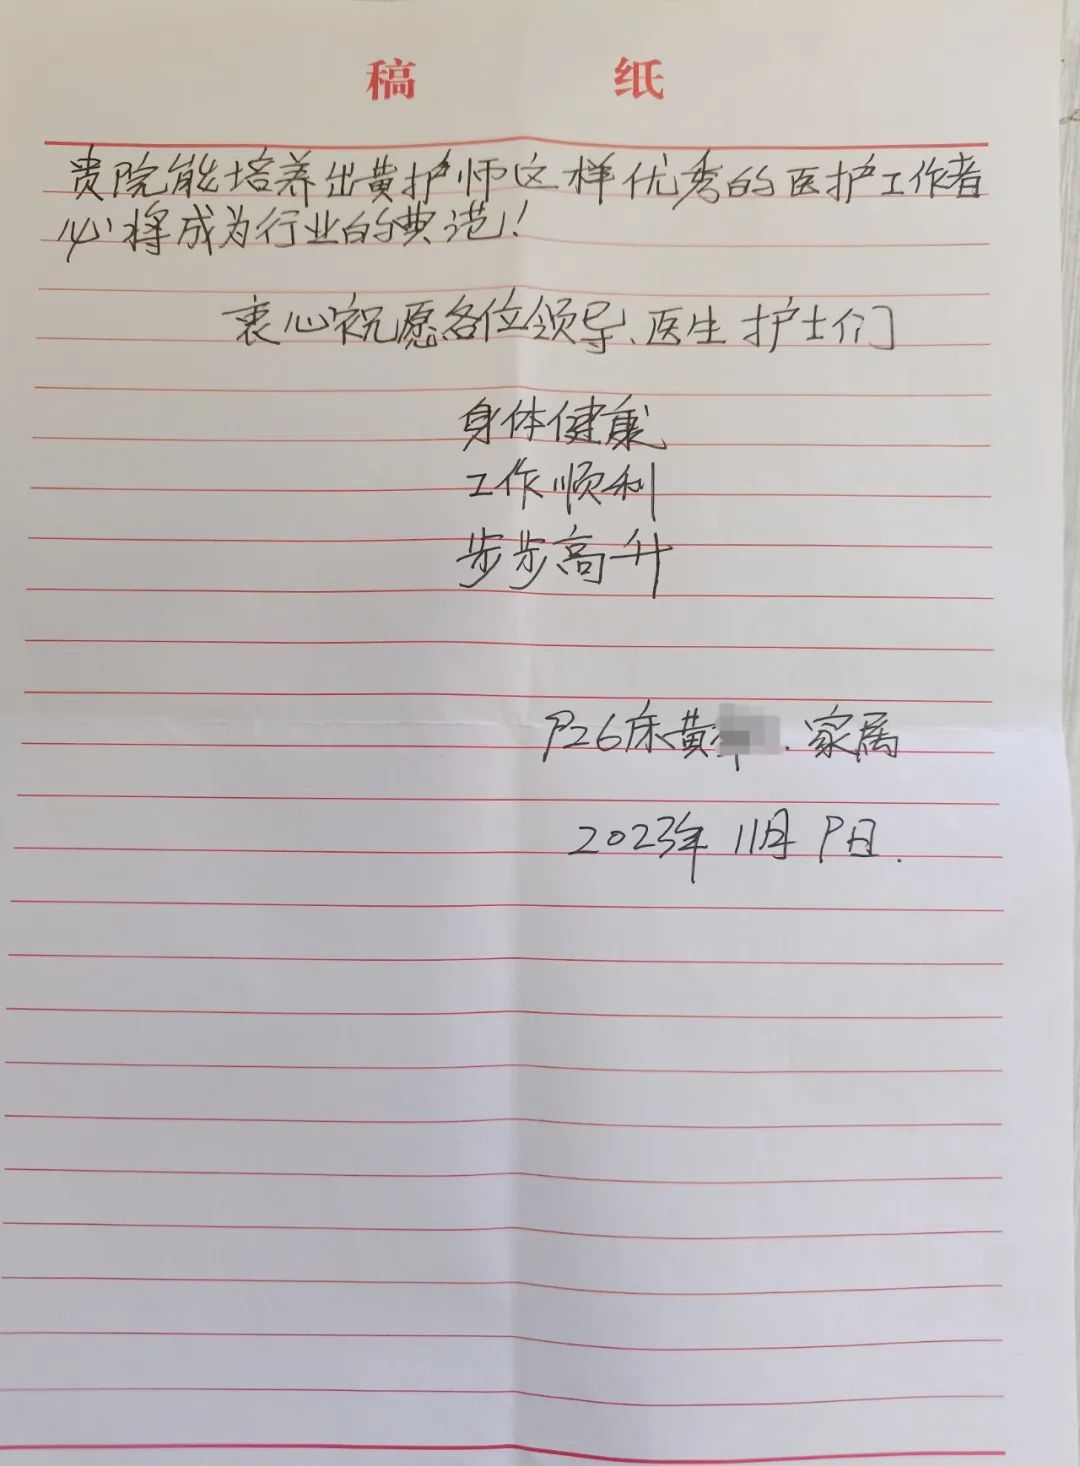 稿 纸
贵院能培养出黄护师这样优秀的医护工作者
必将成为行业的典范!
衷心祝愿各位领导、医生护士们
身体健康
工作顺利
步步高升
P26床黄 家属
2023年11月9日.